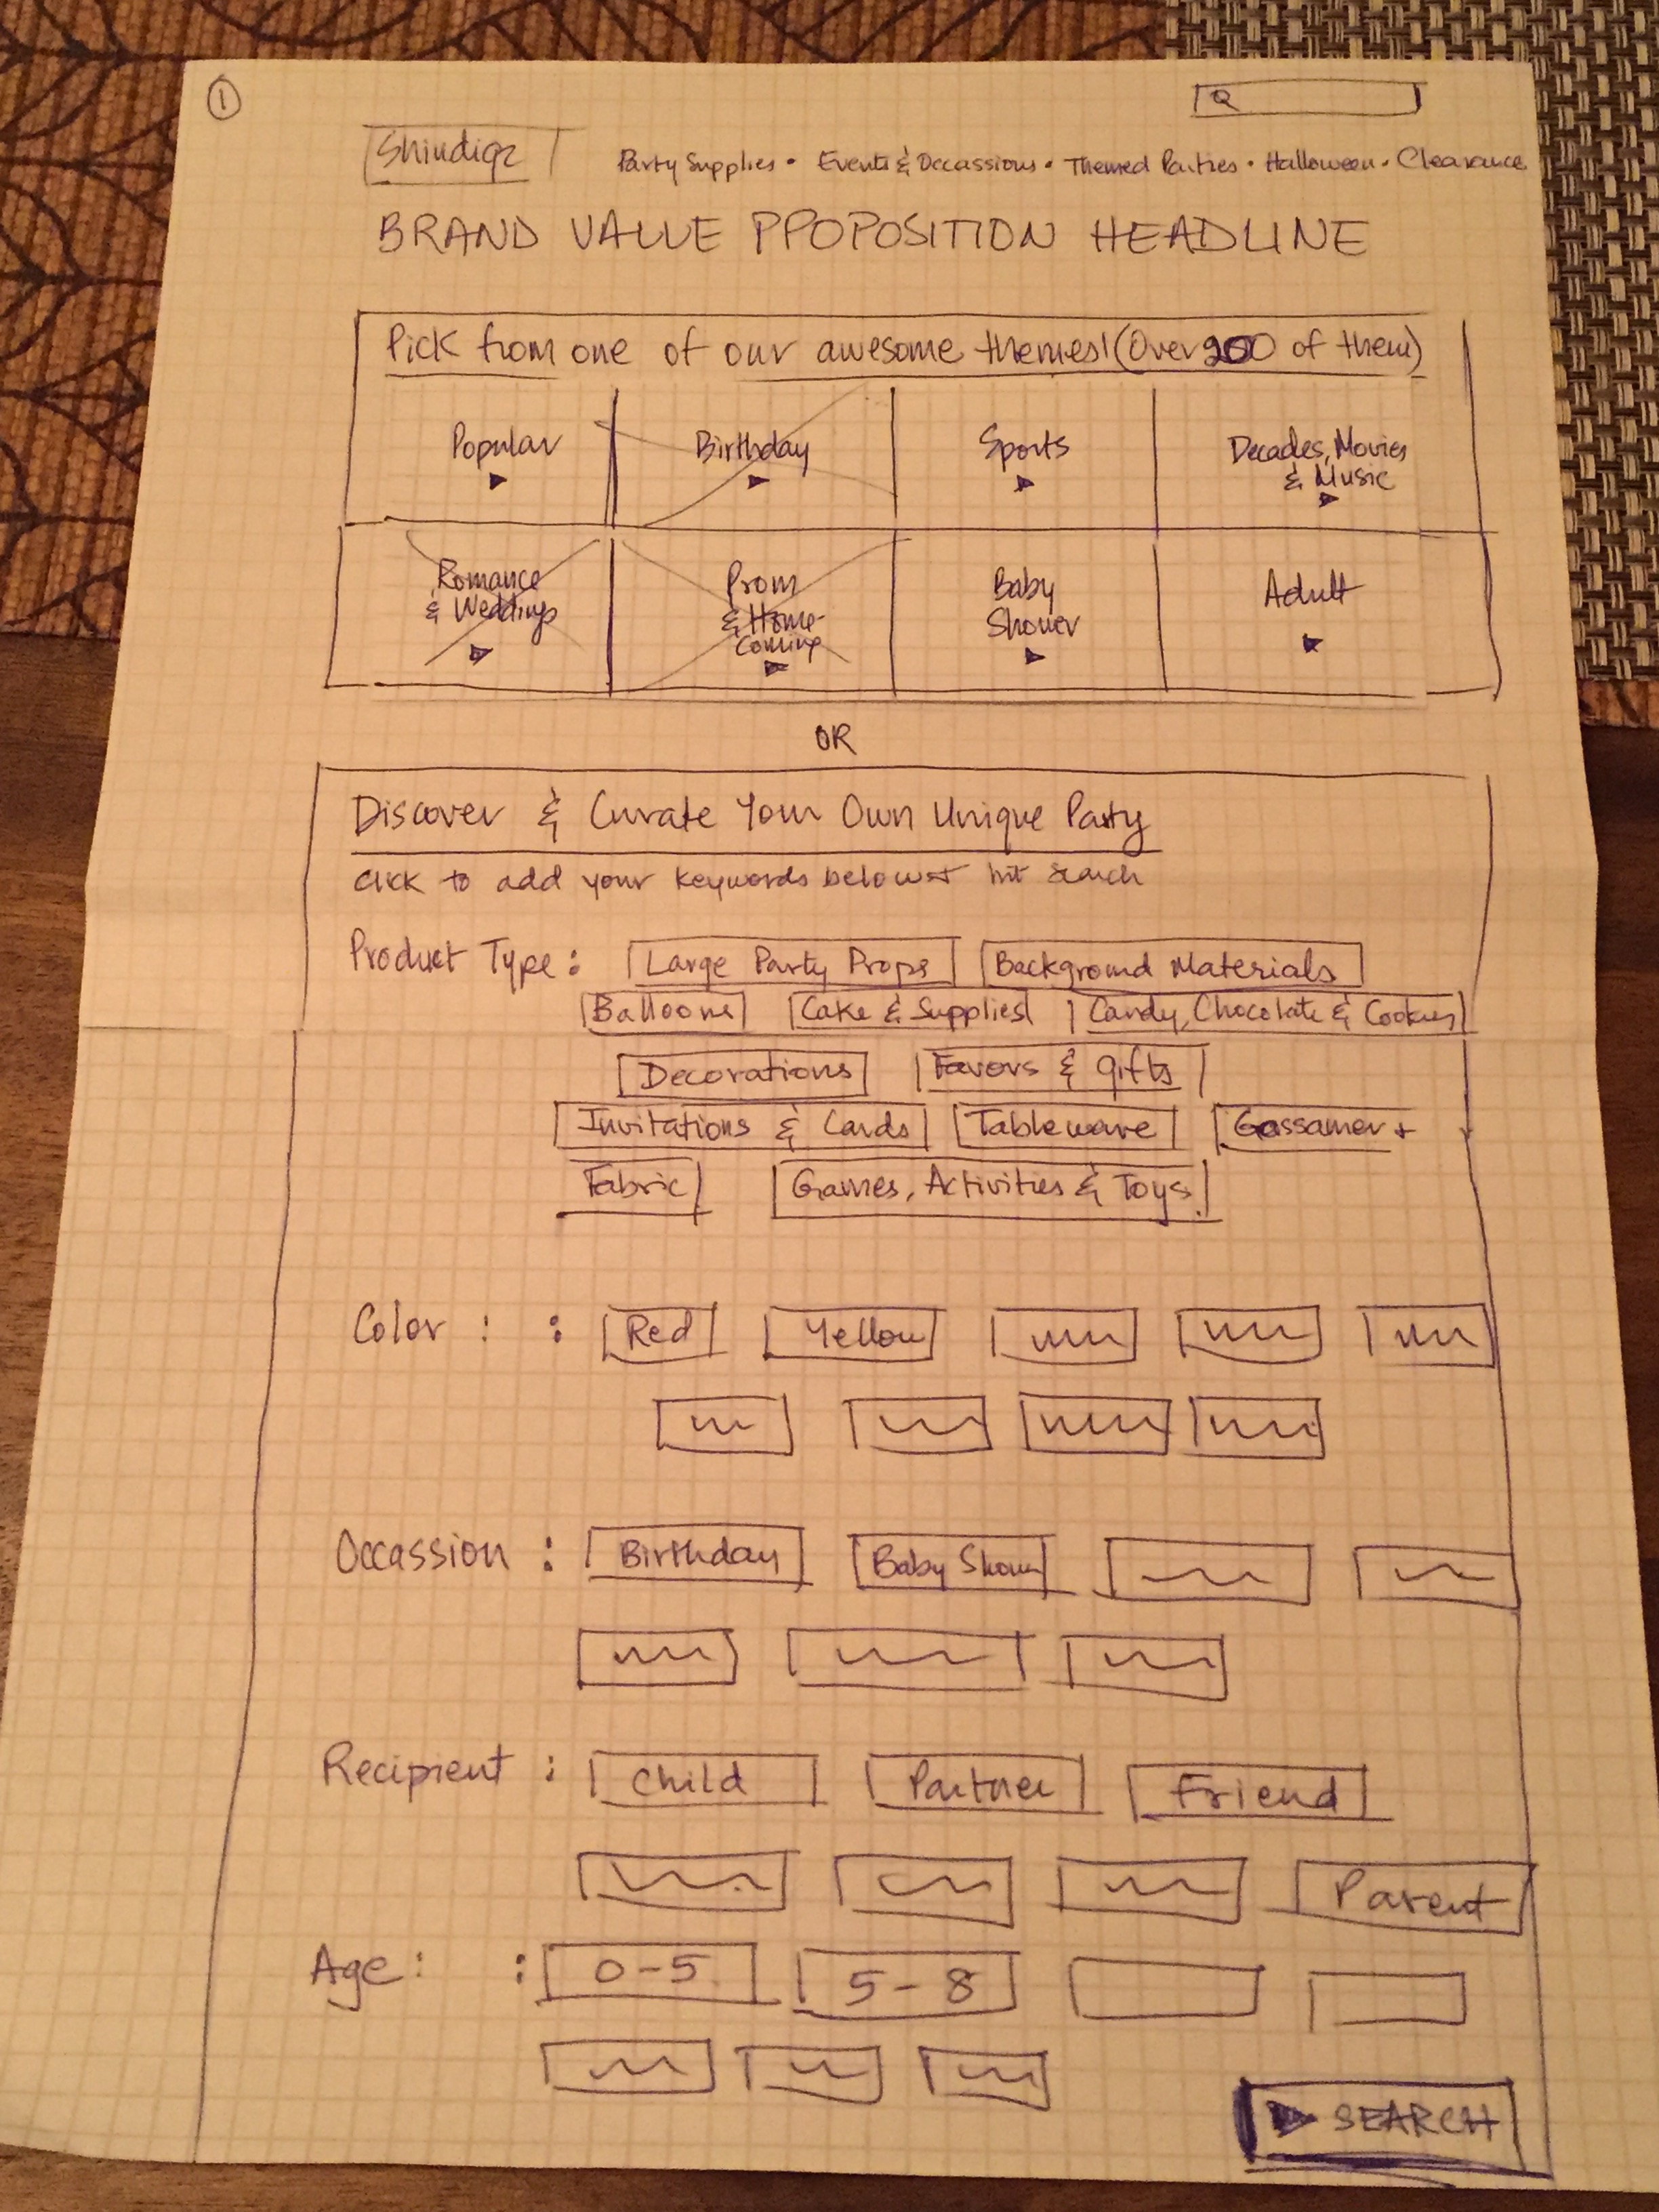 1
Shindigz
Party Supplies • Events & Occassions • Themed Parties • Halloween • Clearance
BRAND VALUE PPOPOSITION HEADLINE
Pick from one of our awesome themes! (Over 200 of them)
Popular
Birthday
Sports
Decades, Movies
& Music
Romance
& Weddings
Prom
& Home-
Coming
Baby
Shower
Adult
OR
Discover & Curate Your Own Unique Party
click to add your keywords below + hit search
Product Type : Large Party Props Background Materials
Balloons Cake & Supplies Candy, Chocolate & Cookies
Decorations Favors & gifts
Invitations & Cards Tableware Gossamer +
Fabric Games, Activities & Toys
Color : : Red Yellow
Occassion : Birthday Baby Shower
Recipient : Child Partner Friend
Parent
Age : : 0-5 5-8
SEARCH